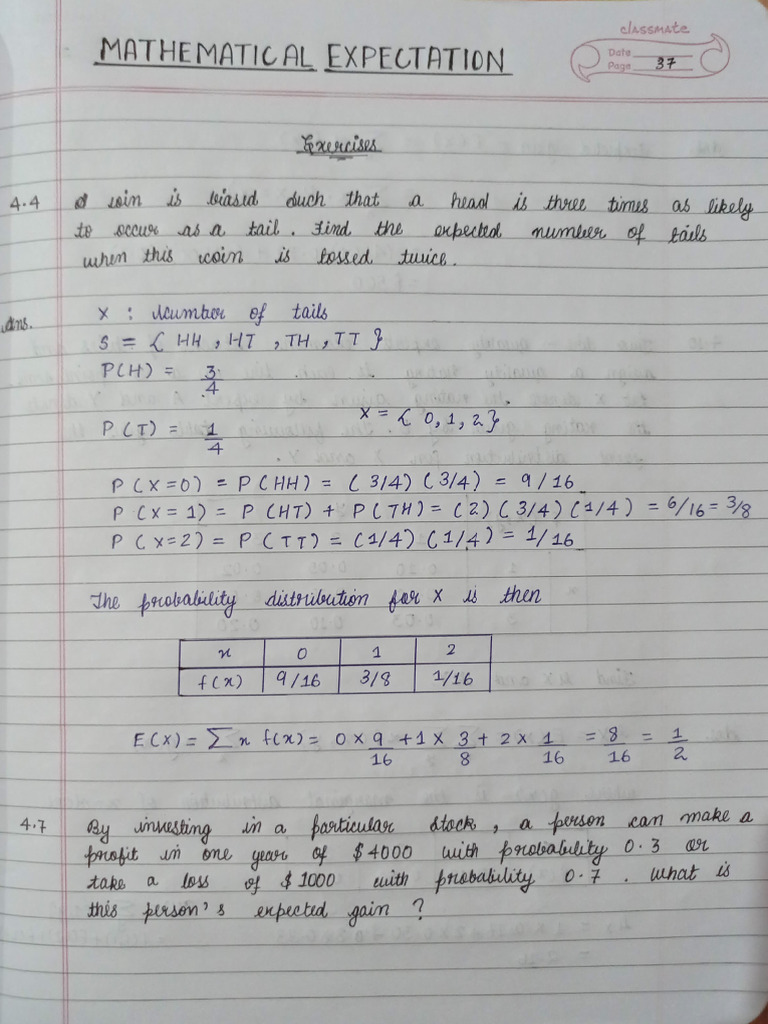 classmate
Date
Page 37
MATHEMATICAL EXPECTATION
Exercises
4.4 A coin is biased such that a head is three times as likely
to occur as a tail. Find the expected number of tails
when this coin is tossed twice.
Ans. X : Number of tails
S = { HH, HT, TH, TT }
P(H) = 3/4
P(T) = 1/4 X = { 0, 1, 2 }
P(X=0) = P(HH) = (3/4)(3/4) = 9/16
P(X=1) = P(HT) + P(TH) = (2)(3/4)(1/4) = 6/16 = 3/8
P(X=2) = P(TT) = (1/4)(1/4) = 1/16
The probability distribution for X is then
x 0 1 2
f(x) 9/16 3/8 1/16
E(X) = ∑ x f(x) = 0 × 9/16 + 1 × 3/8 + 2 × 1/16 = 8/16 = 1/2
4.7 By investing in a particular stock, a person can make a
profit in one year of $4000 with probability 0.3 or
take a loss of $1000 with probability 0.7. What is
this person's expected gain ?